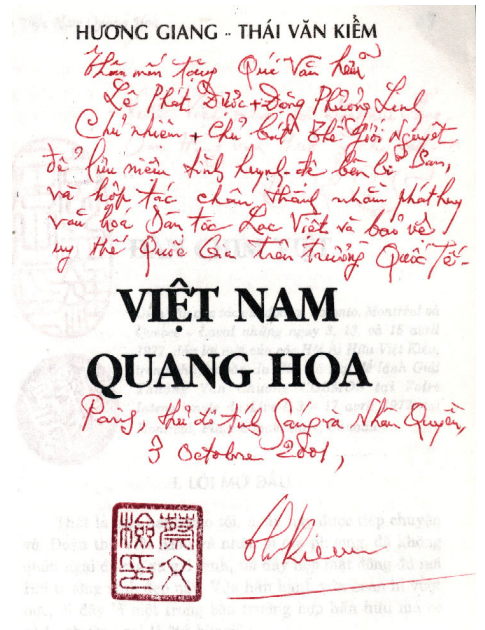 HƯƠNG GIANG - THÁI VĂN KIỂM
Thân mến tặng Quí Văn hữu
Lê Phát Được + Đông Phương Linh
Chủ nhiệm + Chủ bút Thế Giới Nguyệt
để lưu niệm tình huynh-đệ bền bỉ
và hợp tác chân thành nhằm phát huy
văn hóa Dân tộc Lạc Việt và bảo vệ
uy thế Quốc Gia trên trường Quốc Tế-
VIỆT NAM
QUANG HOA
Paris, thủ đô Nhân Quyền,
3 Octobre 2001,
I. LỜI MỞ ĐẦU
蔡文
檢印